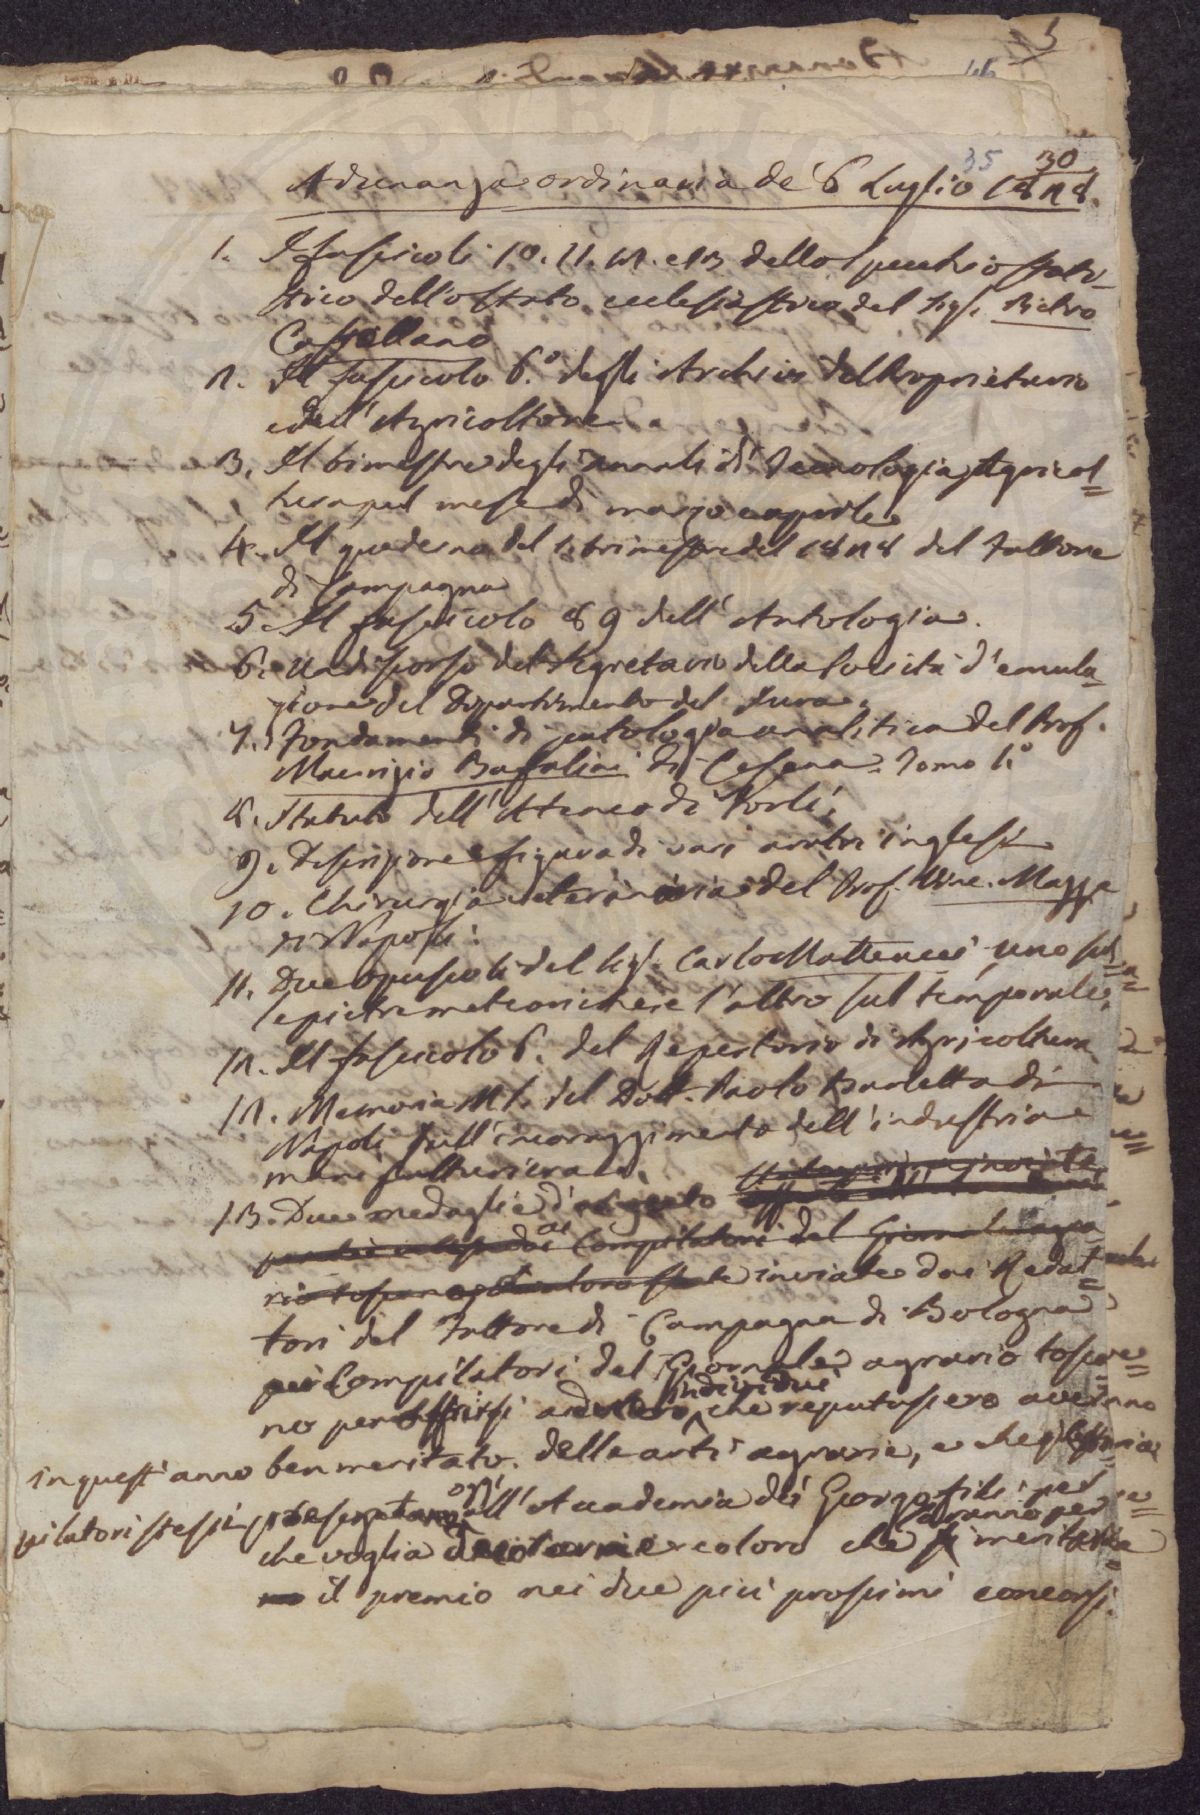 35 30
Adunanza ordinaria de' 6 Luglio 1828.
1. I fascicoli 10. 11. 12. e 13 dello Specchio stati-
stico dello Stato ecclesiastico del Sig. Pietro
Castellano
2. Il fascicolo 6.° degli Archivi del Proprietario
e dell'Agricoltore
3. Il bimestre degli annali di Tecnologia Agricol=
tura pel mese di marzo e aprile
4. Il quaderno del trimestre del 1828 del Fattore
di Campagna
5. Il fascicolo 89 dell'Antologia.
6. Un discorso del Segretario della Società d'emula=
zione del Dipartimento del Jura.
7. Fondamenti di patologia analitica del Prof.
Maurizio Bufalini di Cesena. Tomo 1.°
8. Statuto dell'Ateneo di Forlì.
9. Descrizione e figura di vari aratri inglesi
10. Chirurgia veterinaria del Prof. Vinc. Mazza
di Napoli.
11. Due opuscoli del Sig. Carlo Matteucci, uno sul=
le pietre meteoriche e l'altro sul temporale.
12. Il fascicolo 6. del Repertorio di Agricoltura
12. Memoria MS. del Dott. Paolo Barletta di
Napoli sull'incoraggimento dell'industria
manifatturiera.
13. Due medaglie d'argento
ai Compilatori del Giornale agra
rio toscano inviate dai Redat=
tori del Fattore di Campagna di Bologna
ai Compilatori del Giornale agrario tosca=
no per offrirsi a individui che reputassero avere
in quest'anno ben meritato delle arti agrarie, e che i Com
pilatori stessi presentano ora all'Accademia dei Georgofili per
che voglia decretarne coloro che saranno per meritare
il premio nei due più prossimi concorsi.